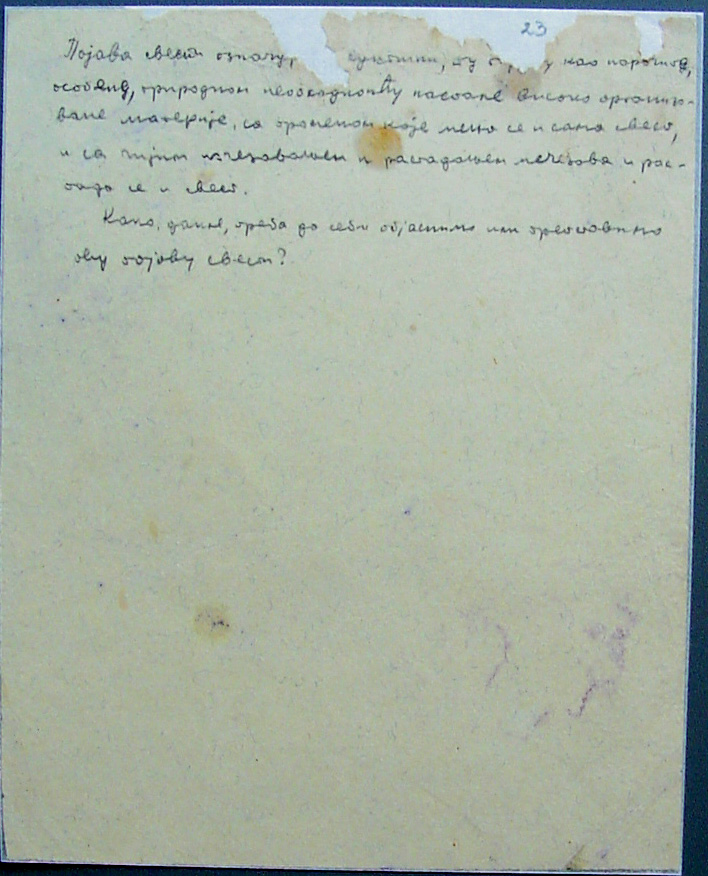 23
Појава свести означу суштини, као
особену, природном необходношћу настале високо организо-
ване материје, са променом које мења се и сама свест,
и са чијим исчезавањем и распадањем исчезава и рас-
пада се и свест.
Како, дакле, треба да себи објаснимо или представимо
ову појаву свести?